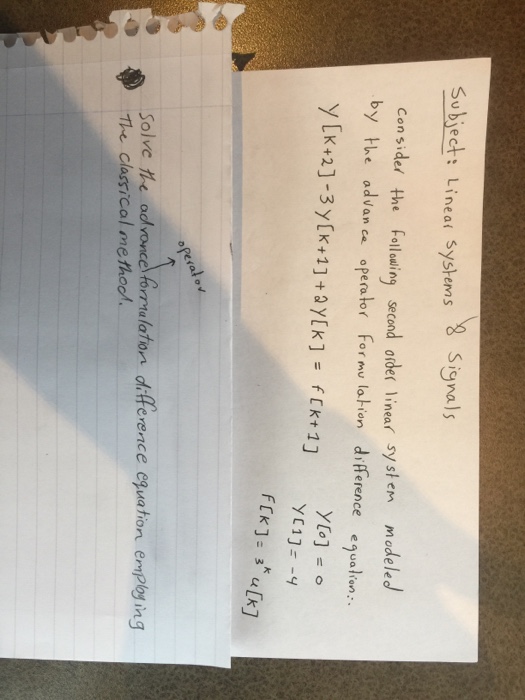 Subject: Linear systems & Signals
consider the following second order linear system modeled
by the advance operator formulation difference equation:.
y[k+2]-3y[k+1]+2y[k] = f[k+1]
y[0] = 0
y[1] = -4
F[k] = 3^k u[k]
operator
Solve the advance formulation difference equation employing
The classical method.